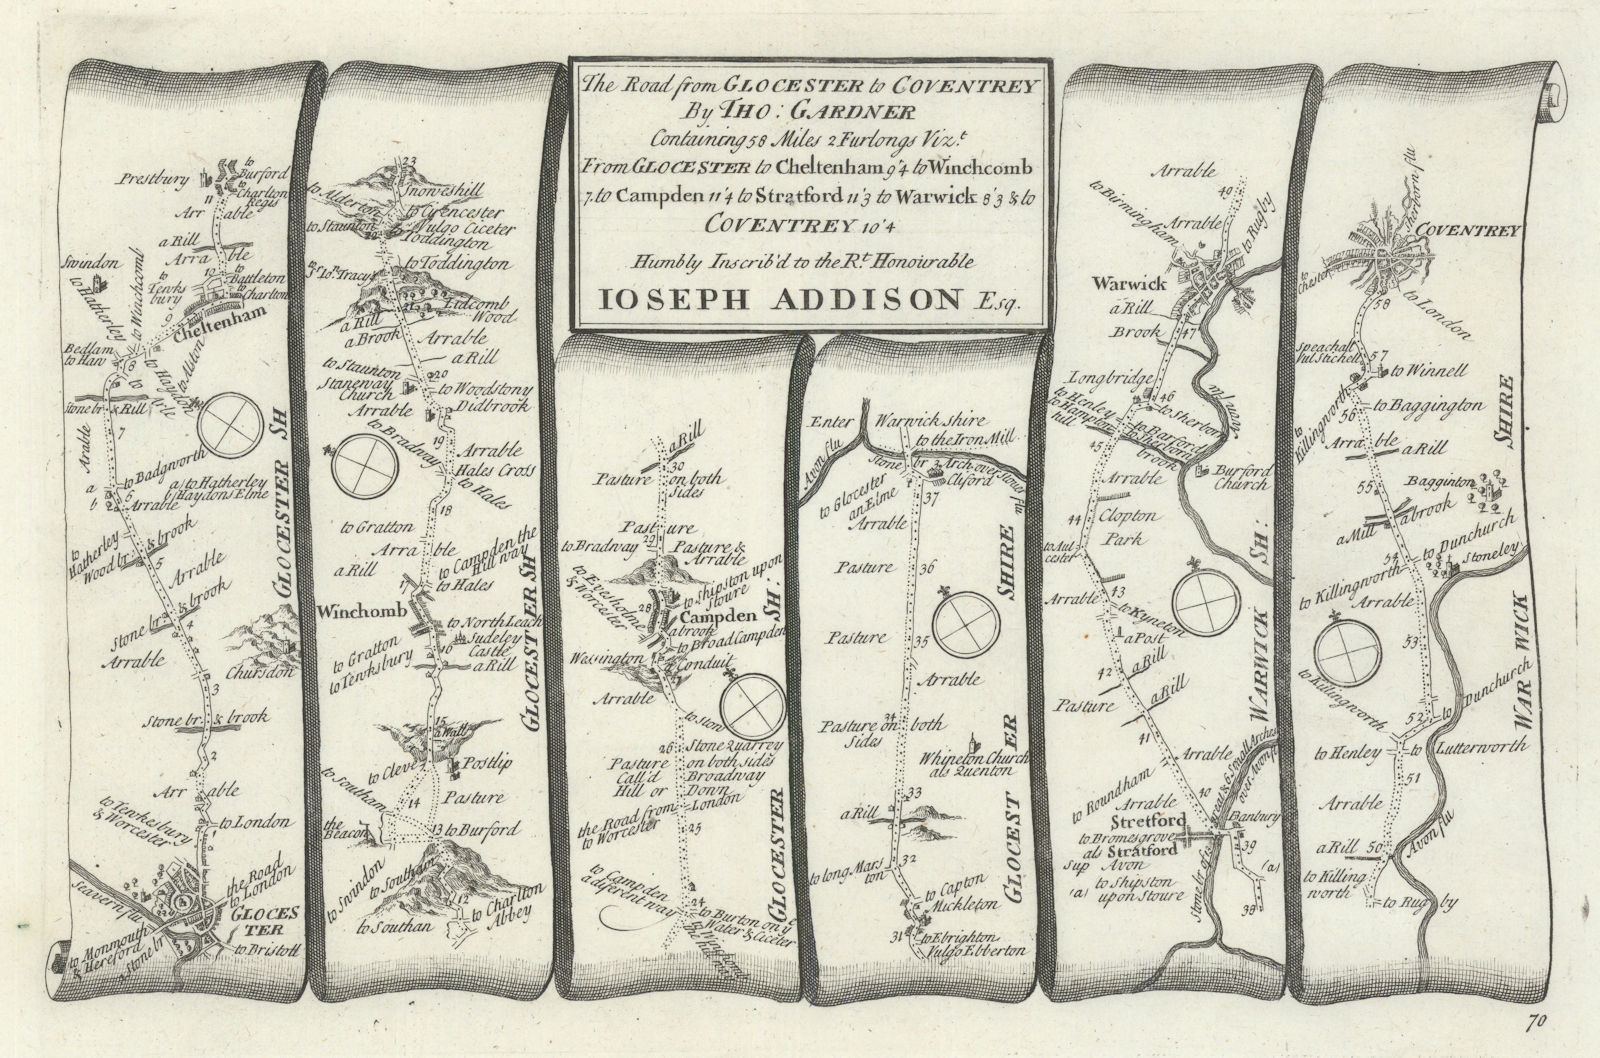 The Road from GLOCESTER to COVENTREY
By THO: GARDNER
Containing 58 Miles 2 Furlongs Vizt.
From GLOCESTER to Cheltenham 9'4 to Winchcomb
7. to Campden 11'4 to Stratford 11'3 to Warwick 8'3 & to
COVENTREY 10'4
Humbly Inscrib'd to the Rt. Honourable
IOSEPH ADDISON Esq.
Prestbury
to Burford
to Charlton Regis
11
Arrable
a Rill
Arrable
Swindon
to Hatherley
to Winchcomb
to Tewksbury
10
to Battleton
to Charlton
9
Cheltenham
Bedlam
to Haw
8
to Arle
to Haydon
to Alston
Stone br & Rill
7
Arable
to Badgworth
a to Hatherley
b Haydons Elme
a
b
Arrable
to Hatherley
Wood br. & brook
5
Arrable
Stone br. & brook
4
Arrable
Chursdon
3
Stone br. & brook
2
Arrable
to Tewkesbury
& Worcester
to London
1
the Road
to London
Seavern flu
GLOCES
TER
to Monmouth
& Hereford
a Stone br
to Bristoll
GLOCESTER SH
23
Snoweshill
to Alderton
to Cirencester
Vulgo Ciceter
to Staunton
22
Toddington
to Toddington
Sr. Jon. Tracys
Lidcomb
Wood
21
a Rill
a Brook
Arrable
a Rill
to Staunton
Staneway
Church
20
to Woodstony
Didbrook
Arrable
to Bradway
19
Arrable
Hales Cross
to Hales
18
to Gratton
Arrable
to Campden the
Hill way
a Rill
to Hales
17
Winchomb
to North Leach
Sudeley
Castle
to Gratton
to Tewksbury
16
a Rill
15
a Wall
to Cleve
Postlip
to Southam
14
Pasture
the
Beacon
13
to Burford
to Swindon
to Southam
12
to Charlton
Abbey
to Southan
GLOCESTER SH
a Rill
30
Pasture on both
Sides
Pasture
29
to Bradway
Pasture &
Arrable
to Evesholme
& Worcester
to Shipston upon
Stoure
28
Campden
a brook
to Broad Campden
Wessington
a Conduit
27
Arrable
to Ston
26
Stone Quarrey
on both sides
Pasture
Call'd Broadway
Hill or Down
the Road from London
to Worcester
25
to Campden
a diferent way
24
to Burton on ye
Water & Ciceter
GLOCESTER SH:
Enter Warwick shire
to the Iron Mill
Avon flu
Stone br 2 Arch. over Stoure flu
Clyford
to Glocester
an Elme
37
Arrable
Pasture
36
Pasture
35
Arrable
34
Pasture on both
Sides
Whineton Church
als Quenton
33
a Rill
32
to long Mars
ton
to Capton
Mickleton
31
to Ebrighton
Vulgo Ebberton
GLOCEST ER SHIRE
Arrable
49
to Birmingham
Arrable
to Rugby
Warwick
a Rill
Brook
47
Longbridge
46
to Henley
to Hampton
hill
to Sherborn
to Barford
45
brook
Avon flu
Burford
Church
Arrable
44
Clopton
Park
to Aul
cester
Arrable
43
to Kyneton
a Post
42
a Rill
a Rill
Pasture
41
Arrable
to Roundham
40
Arrable
Stretford
to Bromesgrove
als Stratford
Sup Avon
(a) to Shipston
upon Stoure
Banbury
39
(a)
38
WARWICK SH:
Sherborn flu
COVENTREY
to
Chester
58
to London
Speachall
Vul Stichell
57
to Winnell
to
Killingworth
56
to Baggington
Arrable
a Rill
55
Bagginton
a Mill
a brook
54
to Dunchurch
Stoneley
to Killingworth
Arrable
53
to Killingworth
52
to Dunchurch
to Henley
to Lutterworth
51
Arrable
a Rill
50
Avon flu
to Killing
worth
to Rugby
WARWICK SHIRE
70